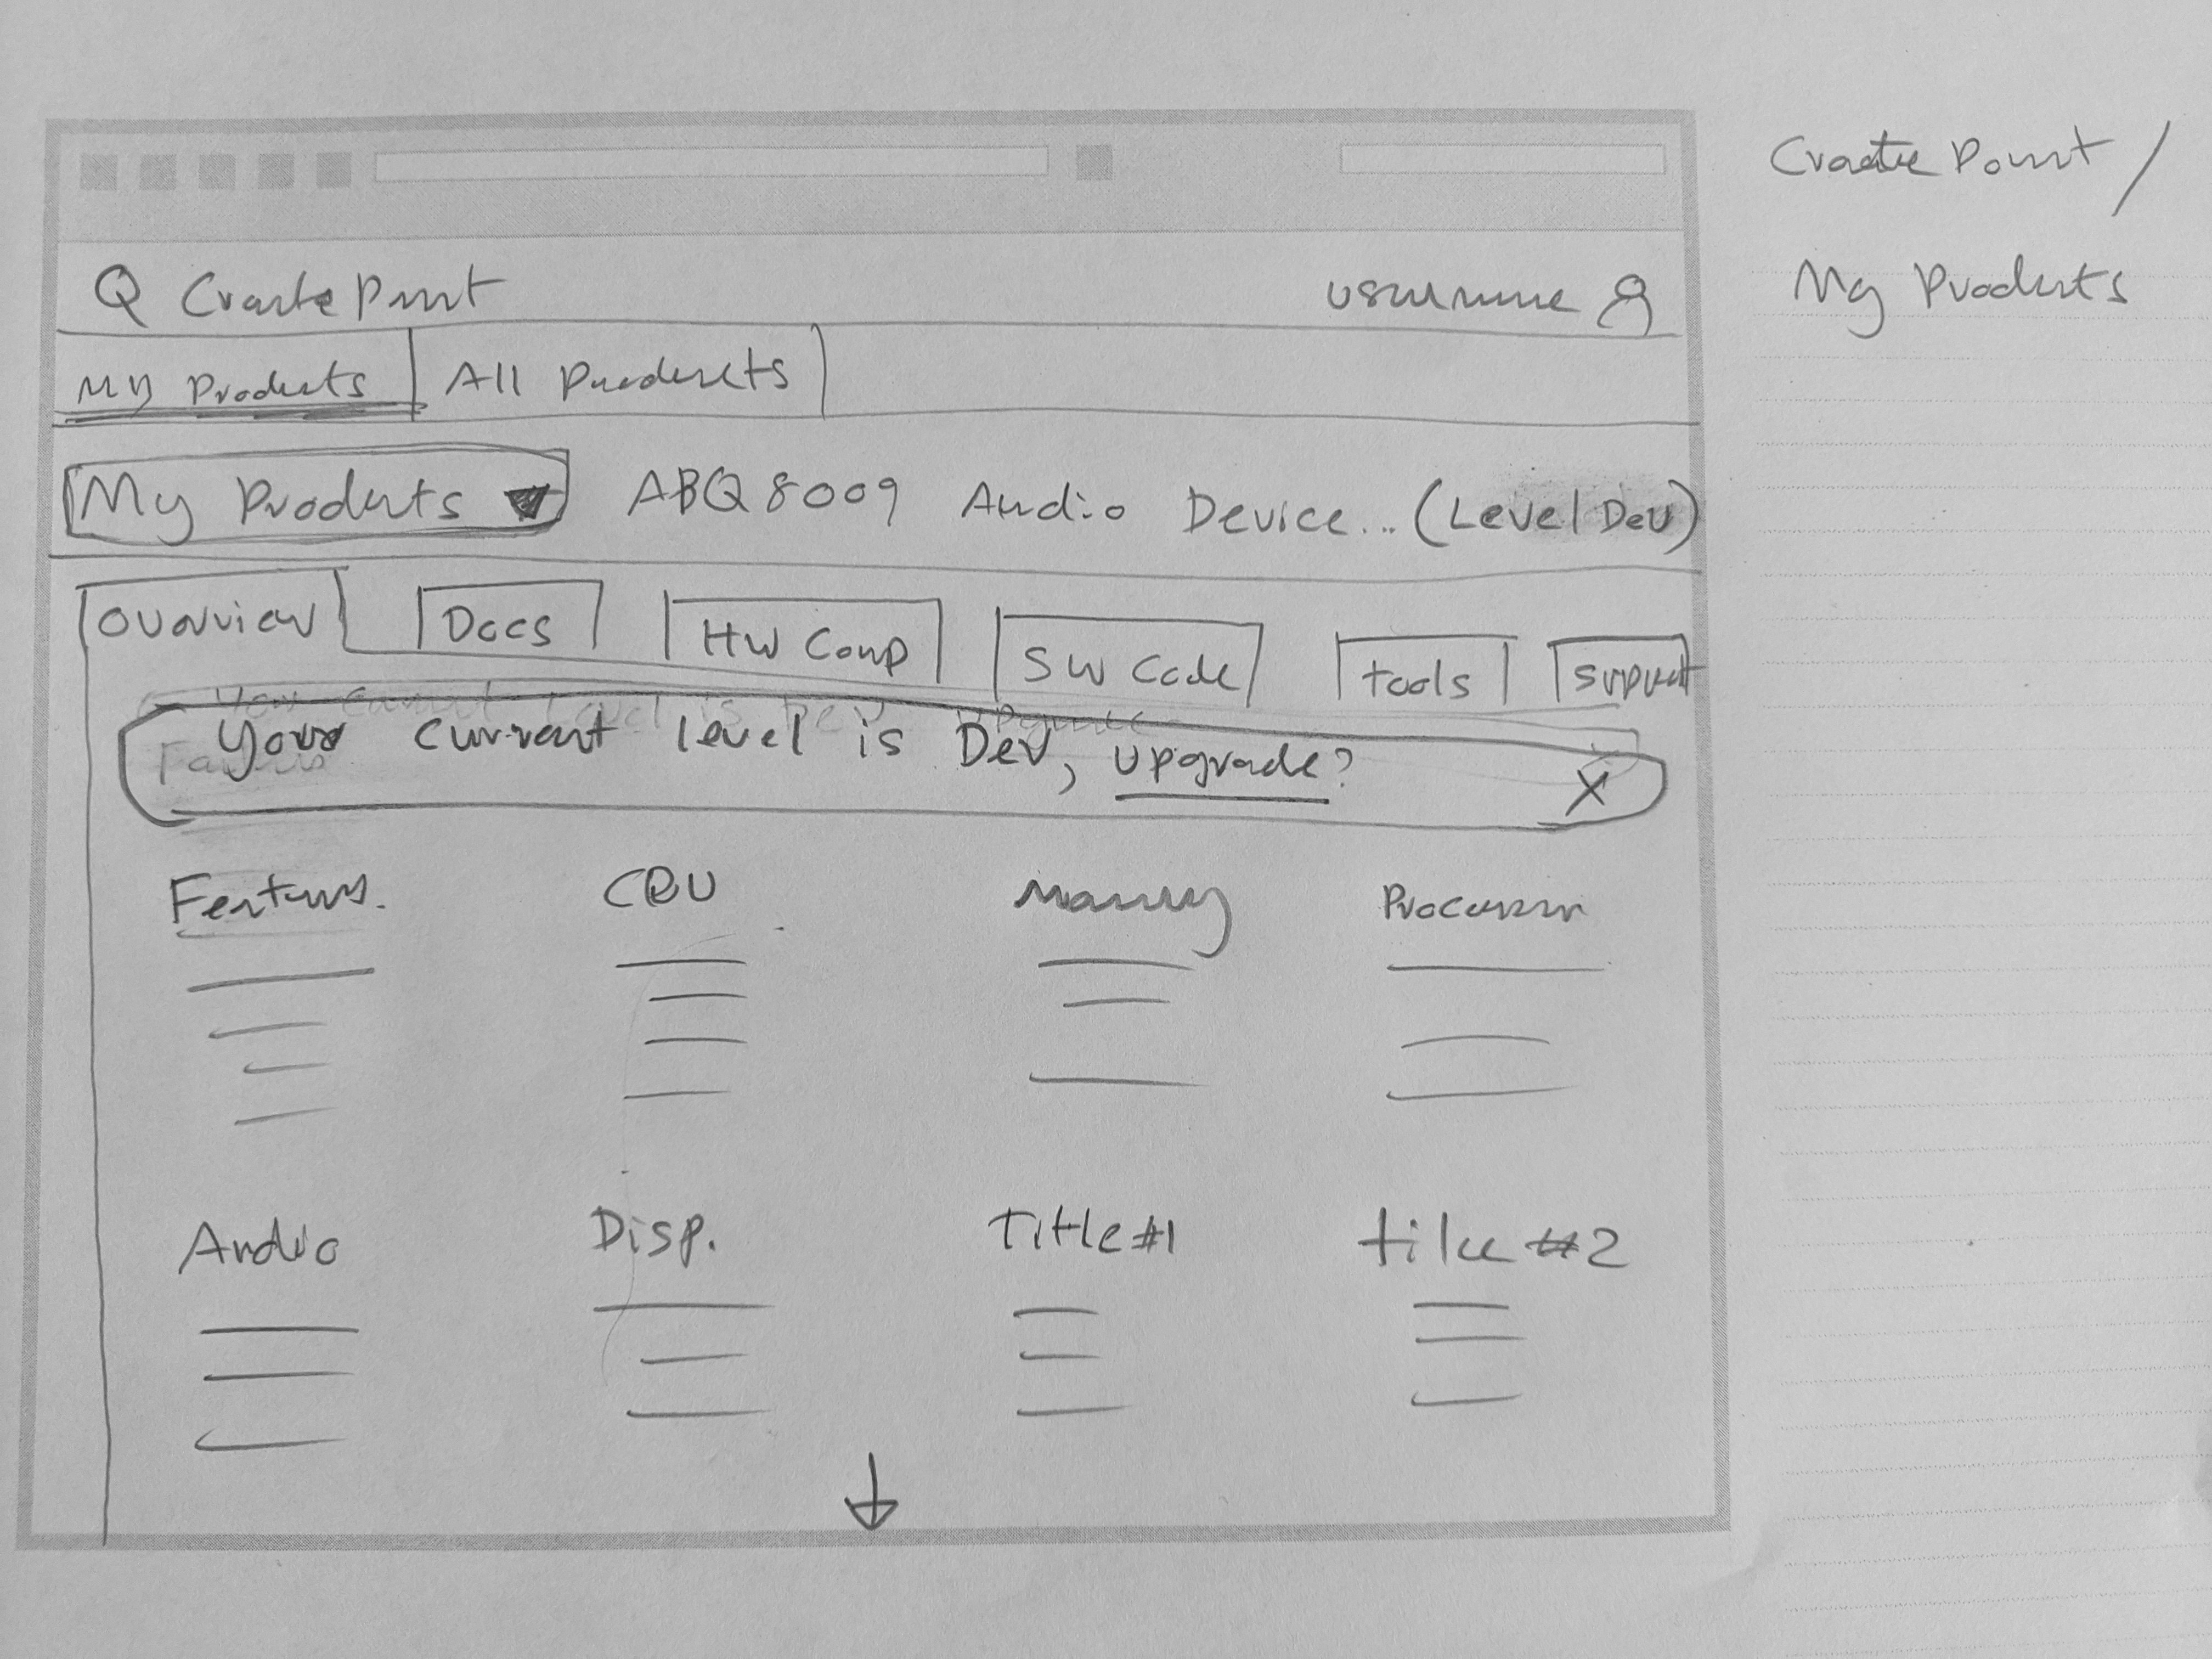 Create Point /
My Products
Q Create Point username
My Products All Products
My Products ABQ8009 Audio Device... (Level Dev)
Overview Docs HW Comp SW Code tools Support
Your current level is Dev, upgrade? X
Features. CPU Memory Processor
Audio Disp. Title #1 title #2